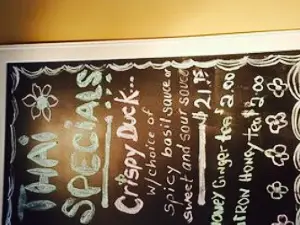 THAI
SPECIALS...
CRISPY DUCK...
w/choice of
spicy basil sauce or
sweet and sour sauce
$21.75
HONEY Ginger Tea $2.00
Honey Tea $2.00